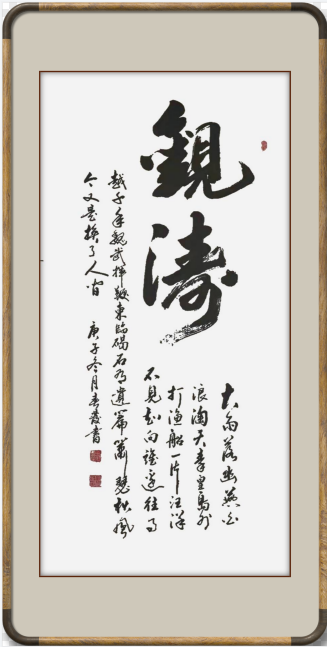 觀濤
大雨落幽燕白
浪淘天秦皇島外
打漁船一片汪洋
不見知向誰邊往事
越千年魏武揮鞭東臨碣石有遺篇蕭瑟秋風
今又是換了人間 庚子冬月書